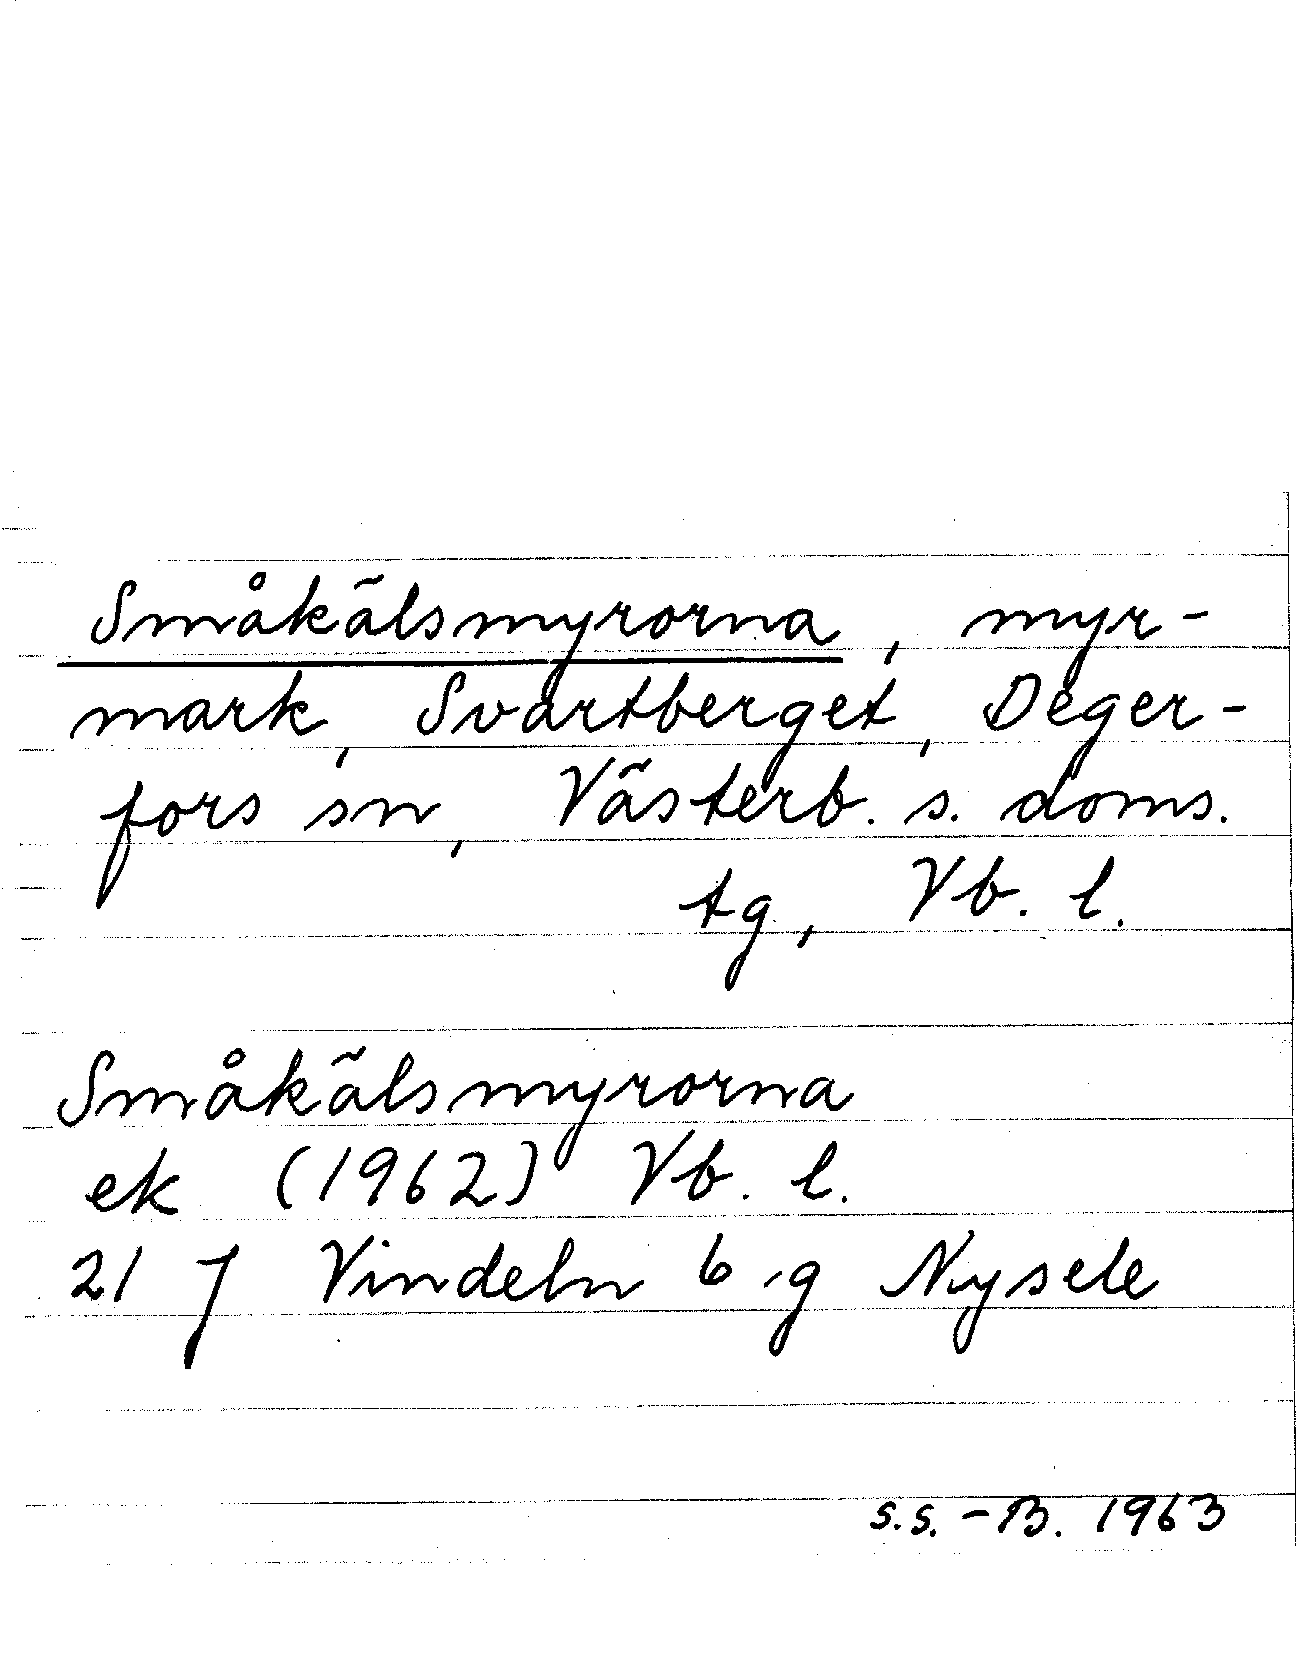 Småkälsmyrorna, myr-
mark, Svartberget, Deger-
fors sn, Västerb. s. doms.
tg, Vb. l.
Småkälsmyrorna
ek (1962) Vb. l.
21 J Vindeln 6 g Nysele
s.s.-B. 1963